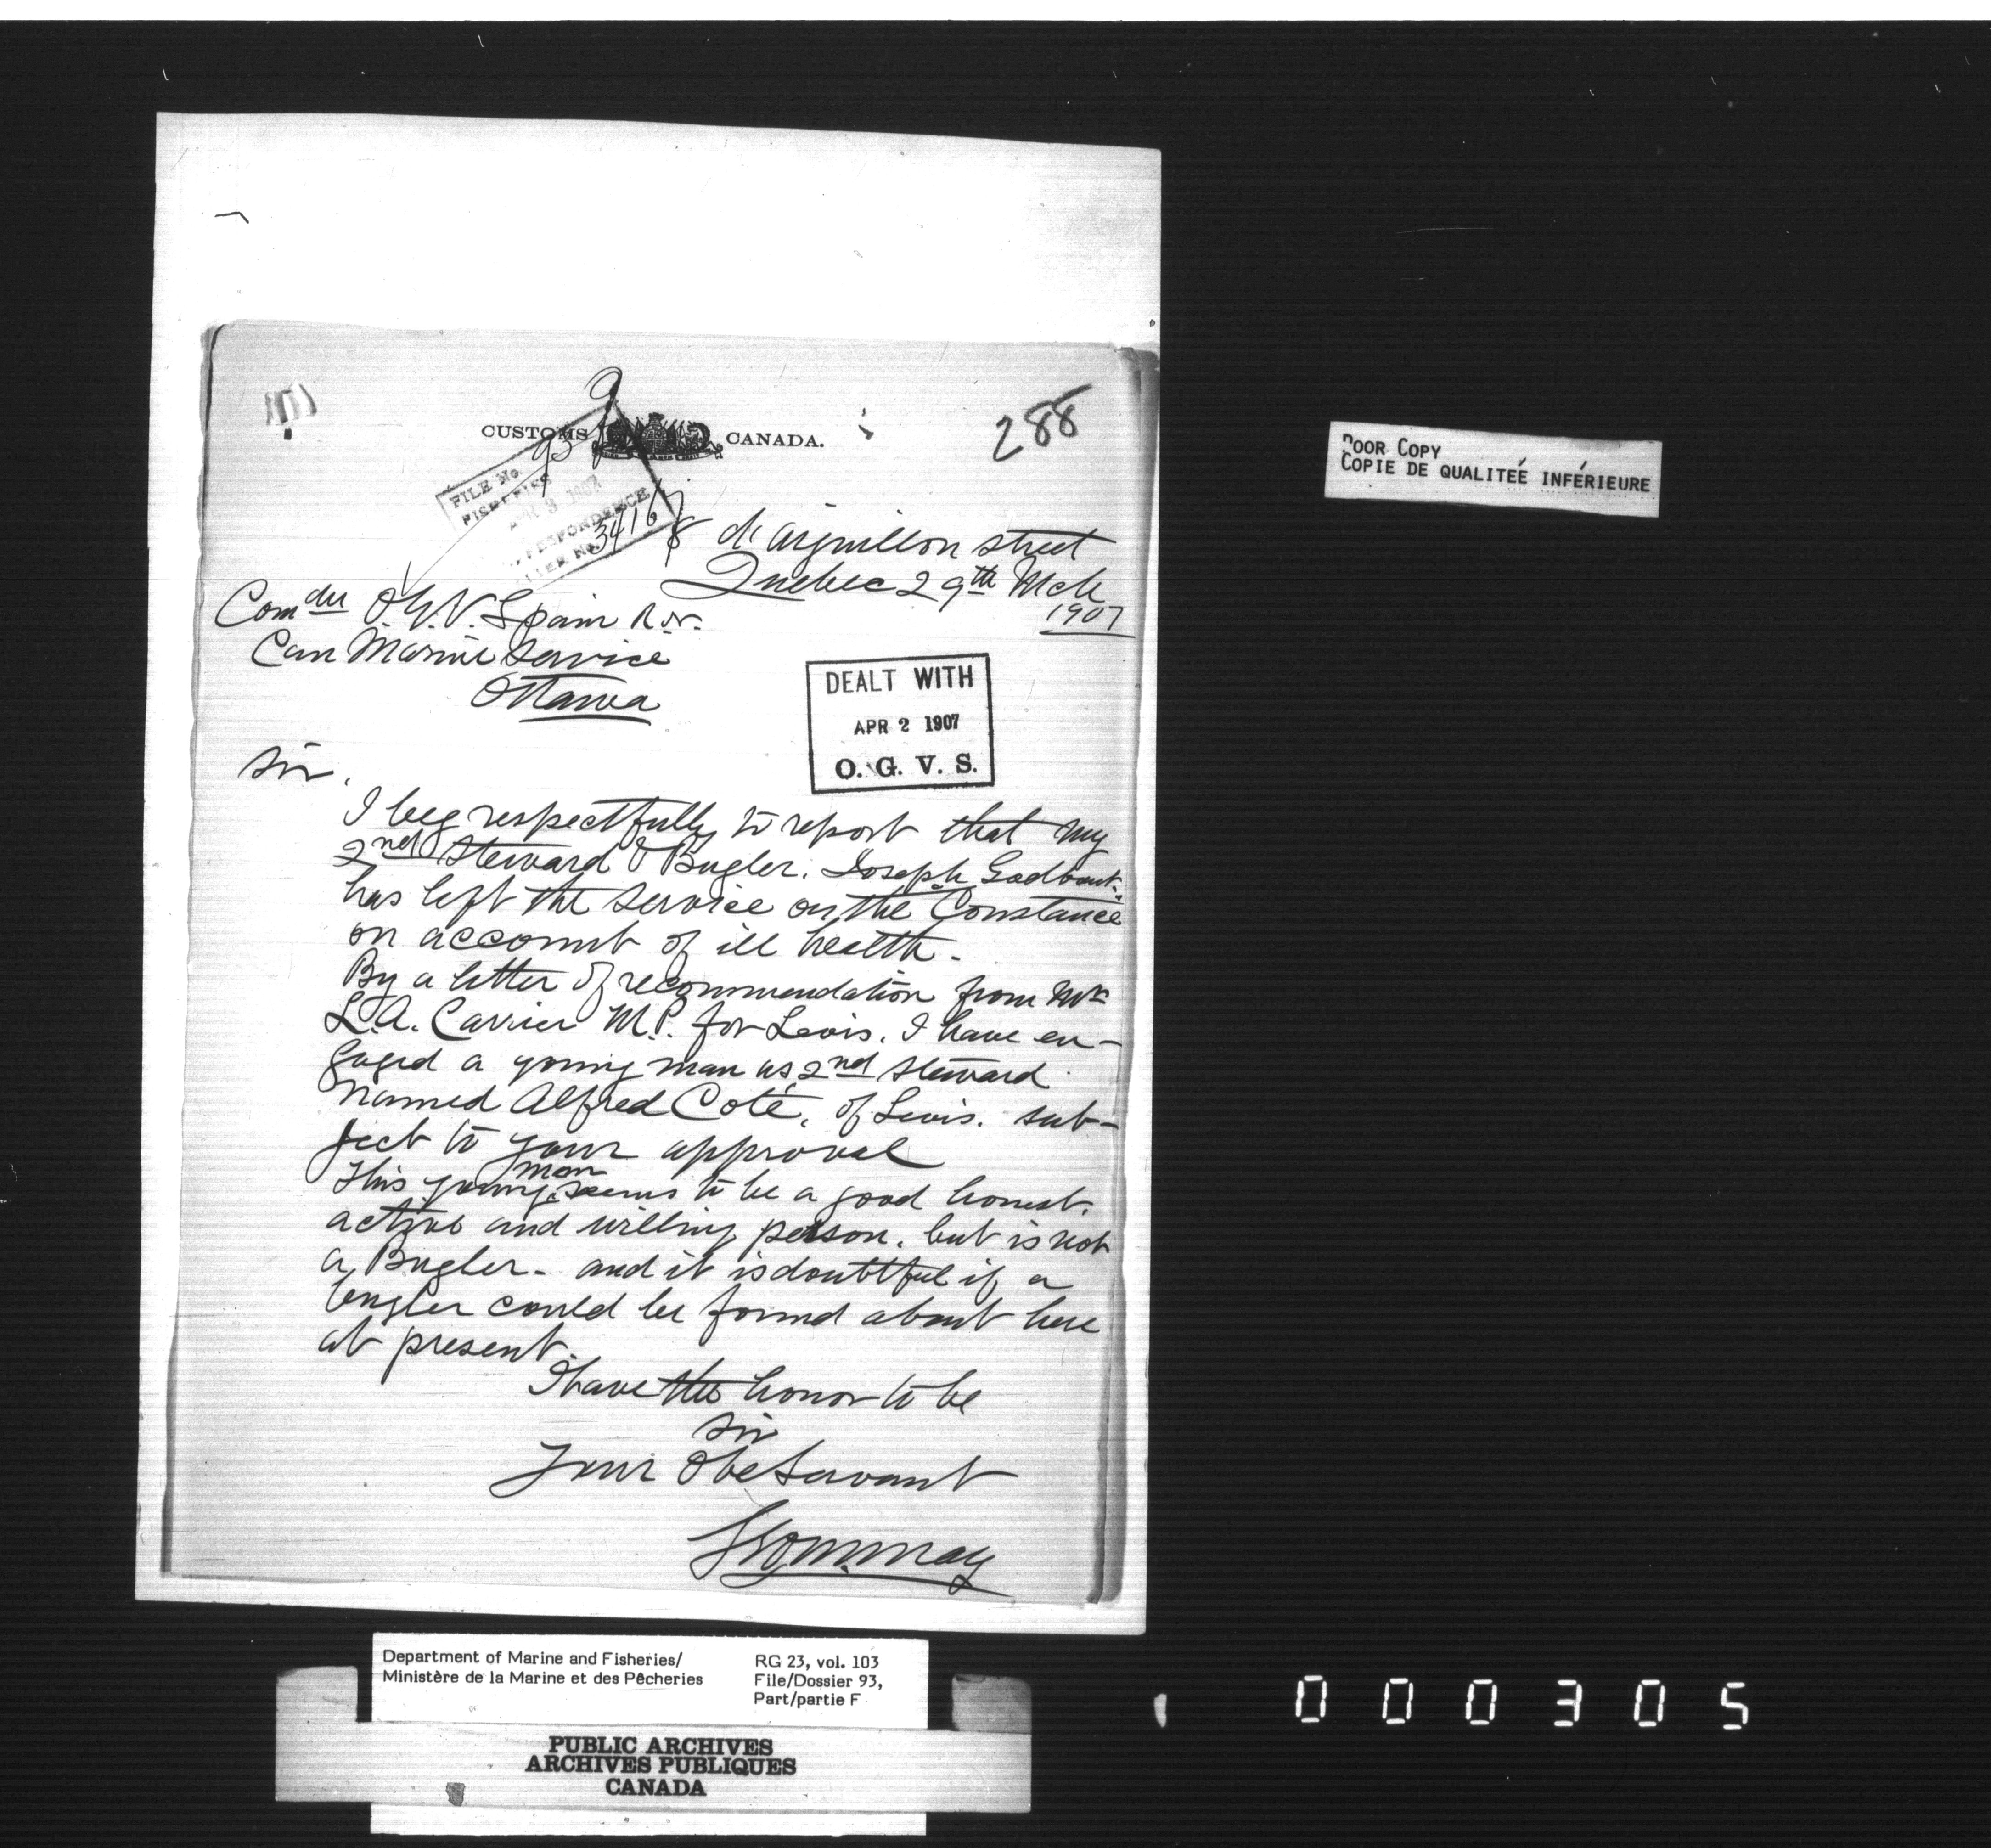 CUSTOMS CANADA.
288
FILE No. 93
FISHERIES
APR 3 1907
CORRESPONDENCE
3416
8 d'aiguillon street
Quebec 29th Mch
1907
Comdr O.G.V. Spain R.N.
Can Marine Service
Ottawa
DEALT WITH
APR 2 1907
O. G. V. S.
Sir,
I beg respectfully to report that my
2nd Steward & Bugler. Joseph Godbout.
has left the service on the Constance
on account of ill health.
By a letter of recommendation from Mr
L.A. Carrier M.P. for Levis. I have en-
gaged a young man as 2nd steward
named Alfred Coté, of Levis. sub-
ject to your approval
This young man seems to be a good honest.
active and willing person. but is not
a Bugler - and it is doubtful if a
bugler could be found about here
at present.
I have the honor to be
Sir
Your Obe Servant
POOR COPY
COPIE DE QUALITEÉ INFÉRIEURE
Department of Marine and Fisheries/
Ministère de la Marine et des Pêcheries
RG 23, vol. 103
File/Dossier 93,
Part/partie F
PUBLIC ARCHIVES
ARCHIVES PUBLIQUES
CANADA
000305